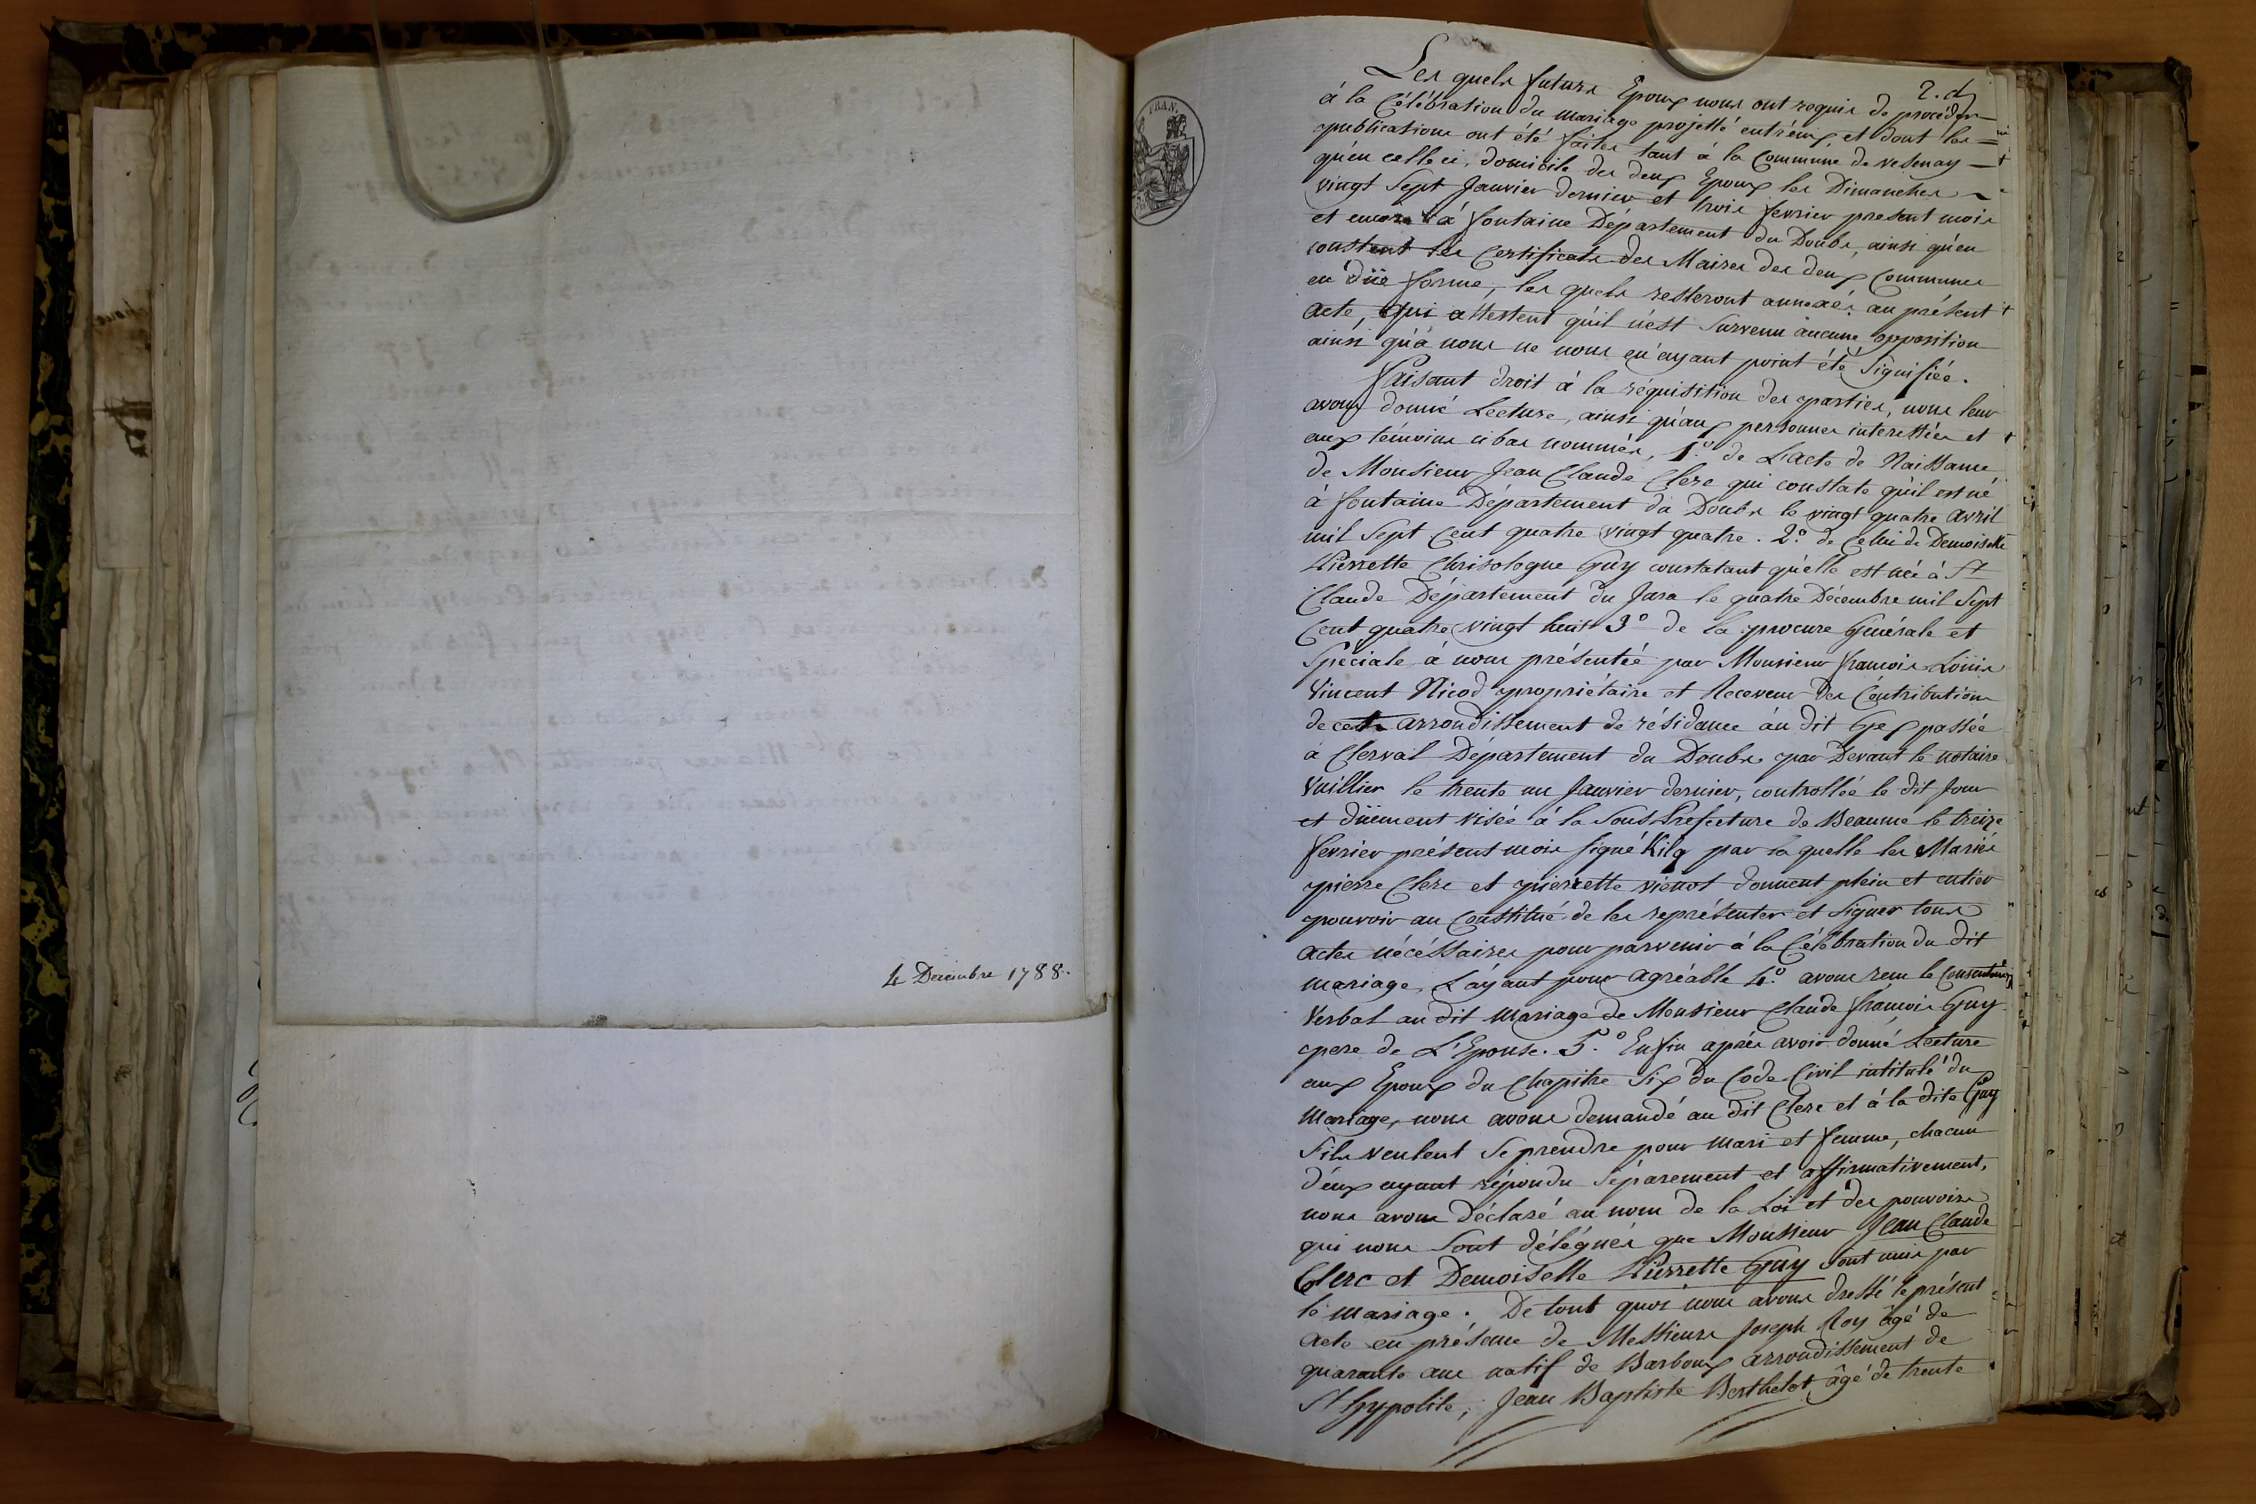 4 Decembre 1788.
FRAN.
2. d
Les quels futurs Epoux nous ont requis de procéder
à la Célébration du mariage projetté entr'eux et dont les
publications ont été faites tant à la Commune de vesenay
qu'en celle ci, domicile des deux Epoux les Dimanches
vingt Sept Janvier dernier et trois fevrier present mois
et encore à fontaine Département du Doubs, ainsi qu'en
constent les Certificats des Maires des deux Communes
en düe forme, les quels resteront annexés au présent
acte, qui attestent qu'il n'est Survenu aucune opposition
ainsi qu'à nous ne nous en ayant point été Signifiée.
Faisant droit à la réquisition des parties, nous leur
avons donné Lecture, ainsi qu'aux personnes interessées et
aux témoins ci bas nommés, 1.º de L'acte de Naissance
de Monsieur Jean Claude Clerc qui constate qu'il est né
à fontaine Département du Doubs le vingt quatre avril
mil Sept Cent quatre vingt quatre. 2.º de Celui de Demoiselle
Pierrette Chrisologue Guy constatant qu'elle est née à St
Claude Département du Jura le quatre Décembre mil Sept
Cent quatre vingt huit 3º de la procure Générale et
Spéciale à nous présentée par Monsieur françois Loüis
Vincent Nicod propriétaire et Receveur des Contributions
de cet arrondissement de résidance au dit Gex passée
à Clerval Departement du Doubs par Devant le notaire
Vuillier le trente un Janvier dernier, controllée le dit Jour
et düement visée à la Sous Prefecture de Beaume le treize
fevrier présent mois signé Kilg par la quelle les Mariés
pierre Clerc et pierrette vienot donnent plein et entier
pouvoir au Constitué de les représenter et Signer tous
actes nécéssaires pour parvenir à la Célébration du dit
mariage, L'ayant pour agréable 4.º avons reçu le Consentement
Verbal au dit mariage de Monsieur Claude françois Guy
pere de L'Epouse. 5.º Enfin après avoir donné Lecture
aux Epoux du Chapitre Six du Code Civil intitulé du
Mariage, nous avons demandé au dit Clerc et à la dite Guy
S'ils veulent Se prendre pour mari et femme, chacun
d'eux ayant répondu Séparement et affirmativement,
nous avons Déclaré au nom de la Loi et des pouvoirs
qui nous Sont délégués que Monsieur Jean Claude
Clerc et Demoiselle Pierrette Guy Sont unis par
le mariage. De tout quoi nous avons dressé le présent
acte en présence de Messieurs Joseph Roy âgé de
quarante ans natif de Barboux arrondissement de
St hypolite, Jean Baptiste Berthelot âgé de trente